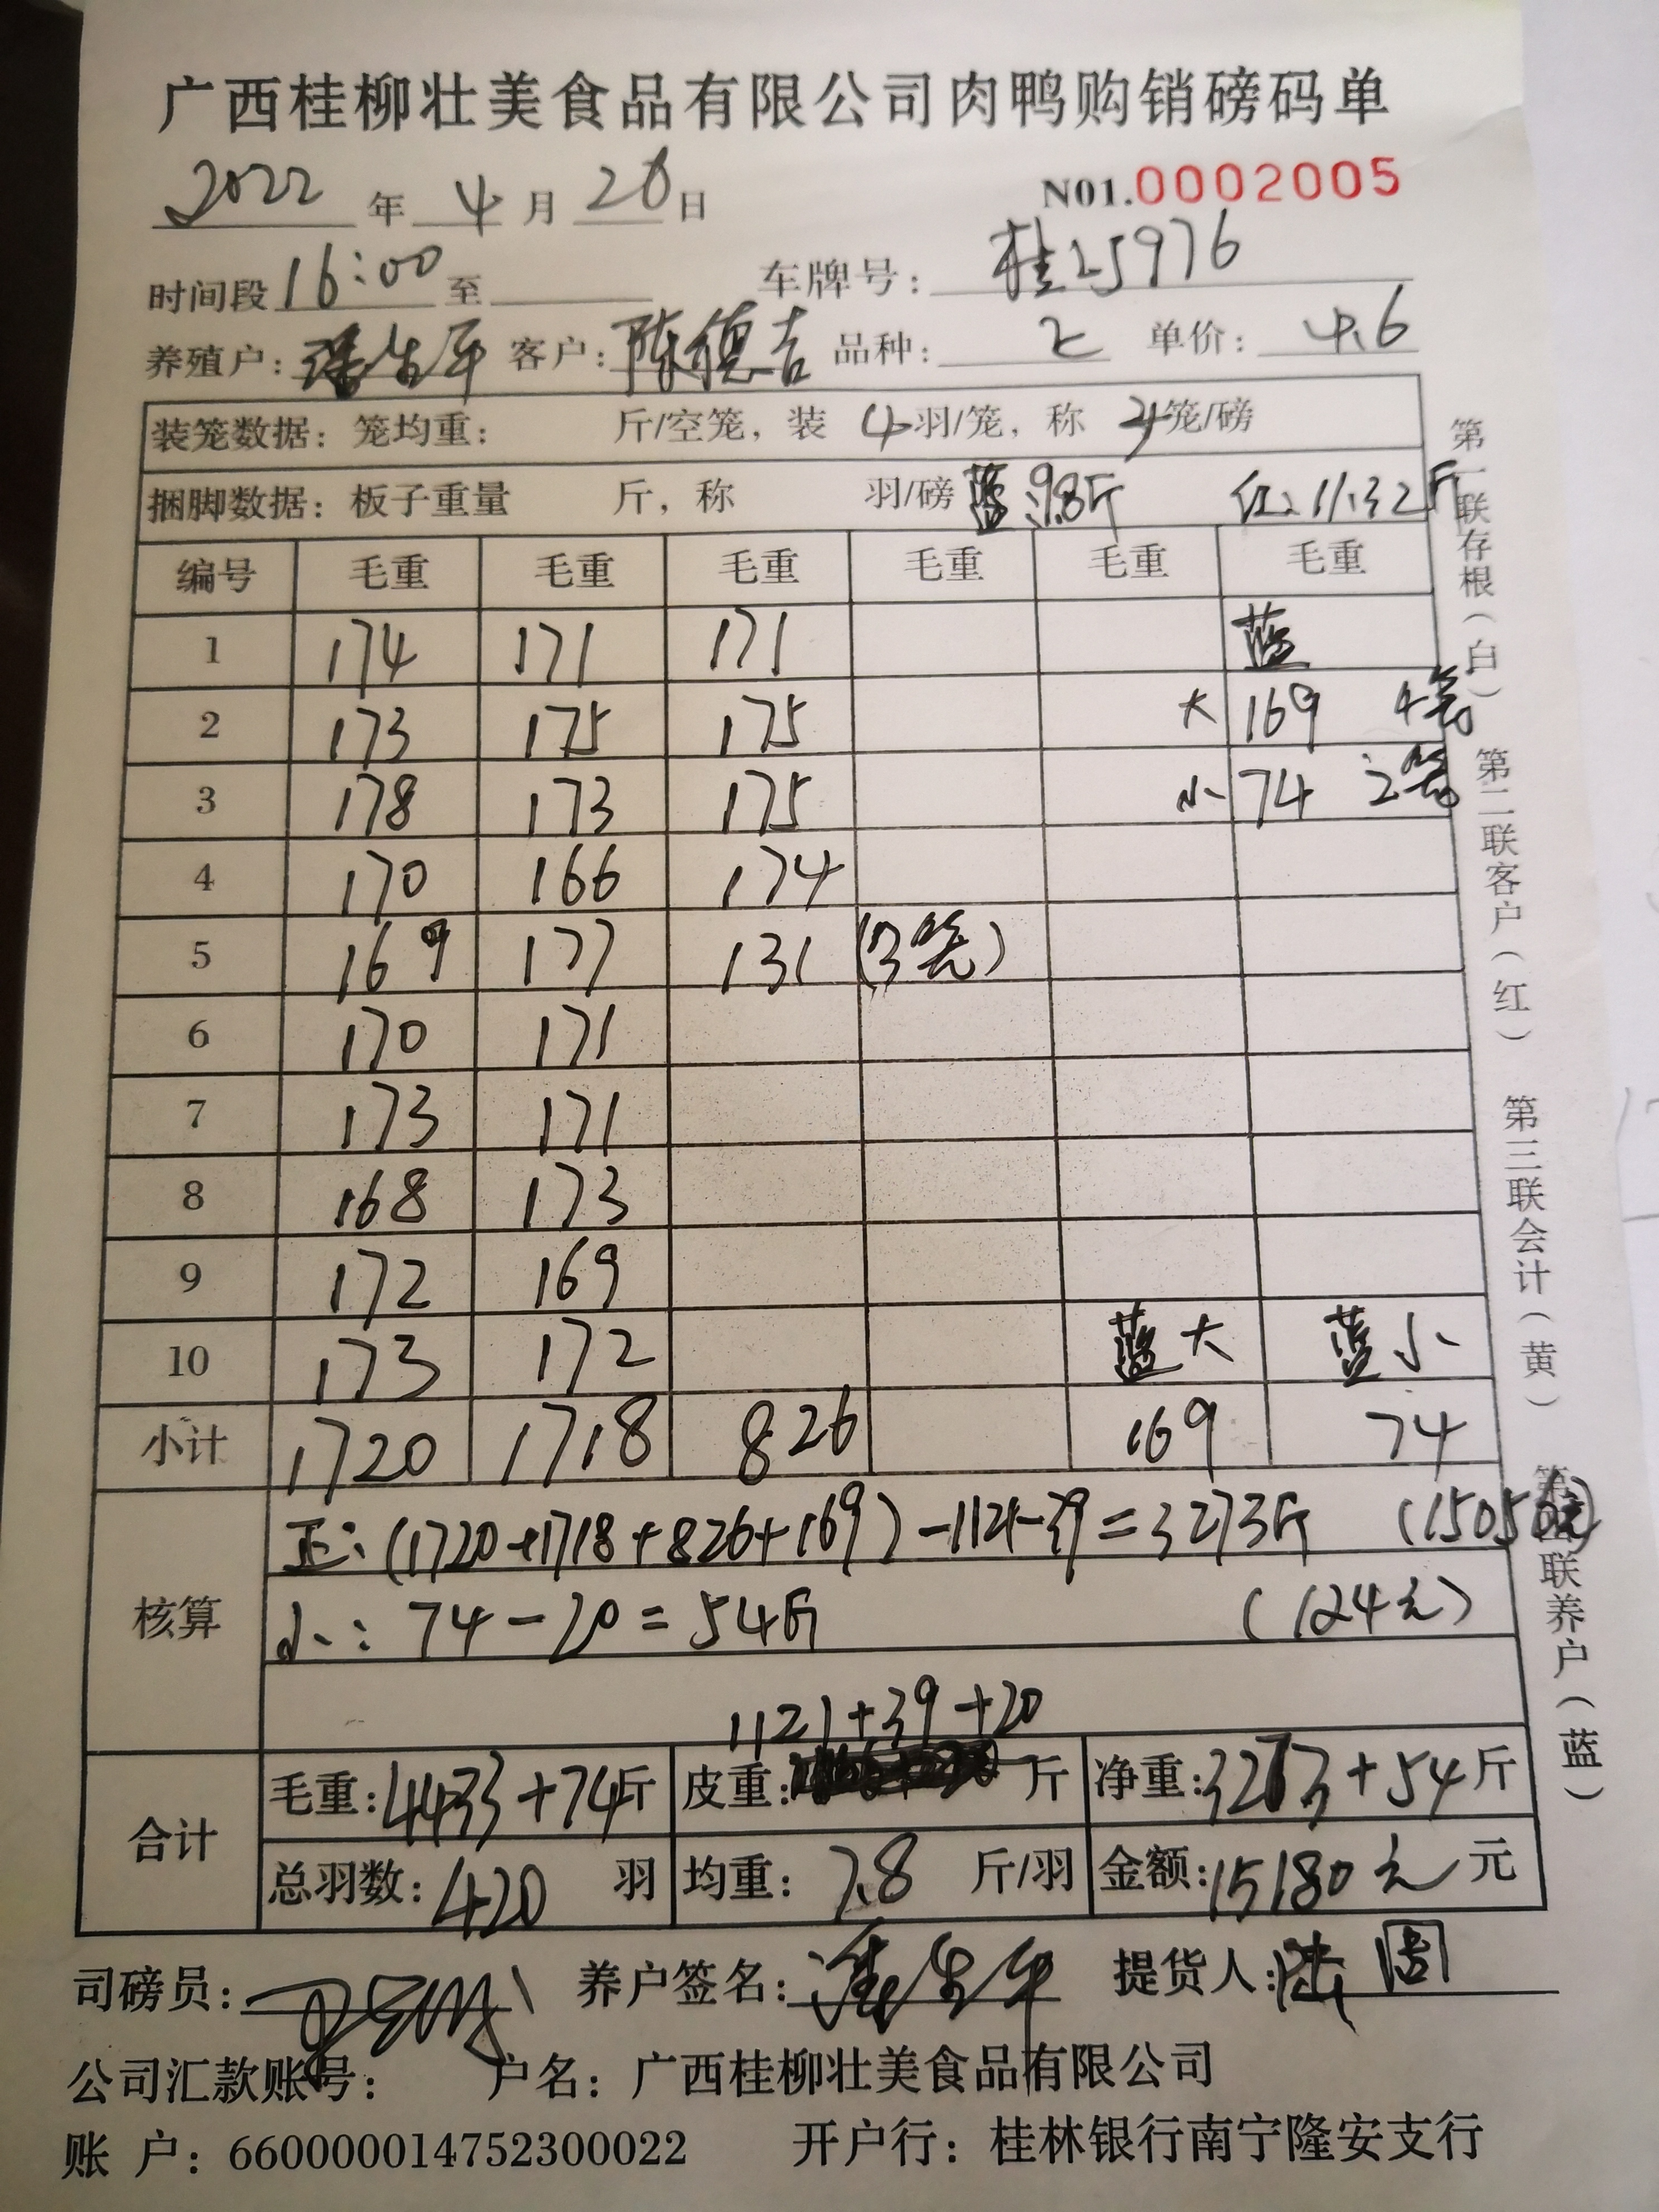 广西桂柳壮美食品有限公司肉鸭购销磅码单
2022 年 4 月 26 日 N01.0002005
时间段 16:00 至 车牌号： 桂25976
养殖户： 客户：陈德吉 品种： 单价： 4.6
装笼数据：笼均重： 斤/空笼，装 4 羽/笼，称 4 笼/磅
捆脚数据：板子重量 斤，称 羽/磅 蓝：9.8斤 红：11.32斤
编号 毛重 毛重 毛重 毛重 毛重 毛重
1 174 171 171 蓝
2 173 175 175 大 169 4笼
3 178 173 175 小 74 2笼
4 170 166 174
5 169 177 131 (3笼)
6 170 171
7 173 171
8 168 173
9 172 169
10 173 172 蓝大 蓝小
小计 1720 1718 826 169 74
核算 正：(1720+1718+826+169)-1121-39=3273斤 (15056元)
小：74-20=54斤 (124元)
1121+39+20
合计 毛重：4433+74斤 皮重： 斤 净重：3273+54斤
总羽数：420 羽 均重： 7.8 斤/羽 金额：15180元 元
司磅员： 养户签名： 提货人：
公司汇款账号： 户名：广西桂柳壮美食品有限公司
账 户：660000014752300022 开户行：桂林银行南宁隆安支行
第一联存根（白） 第二联客户（红） 第三联会计（黄） 第四联养户（蓝）